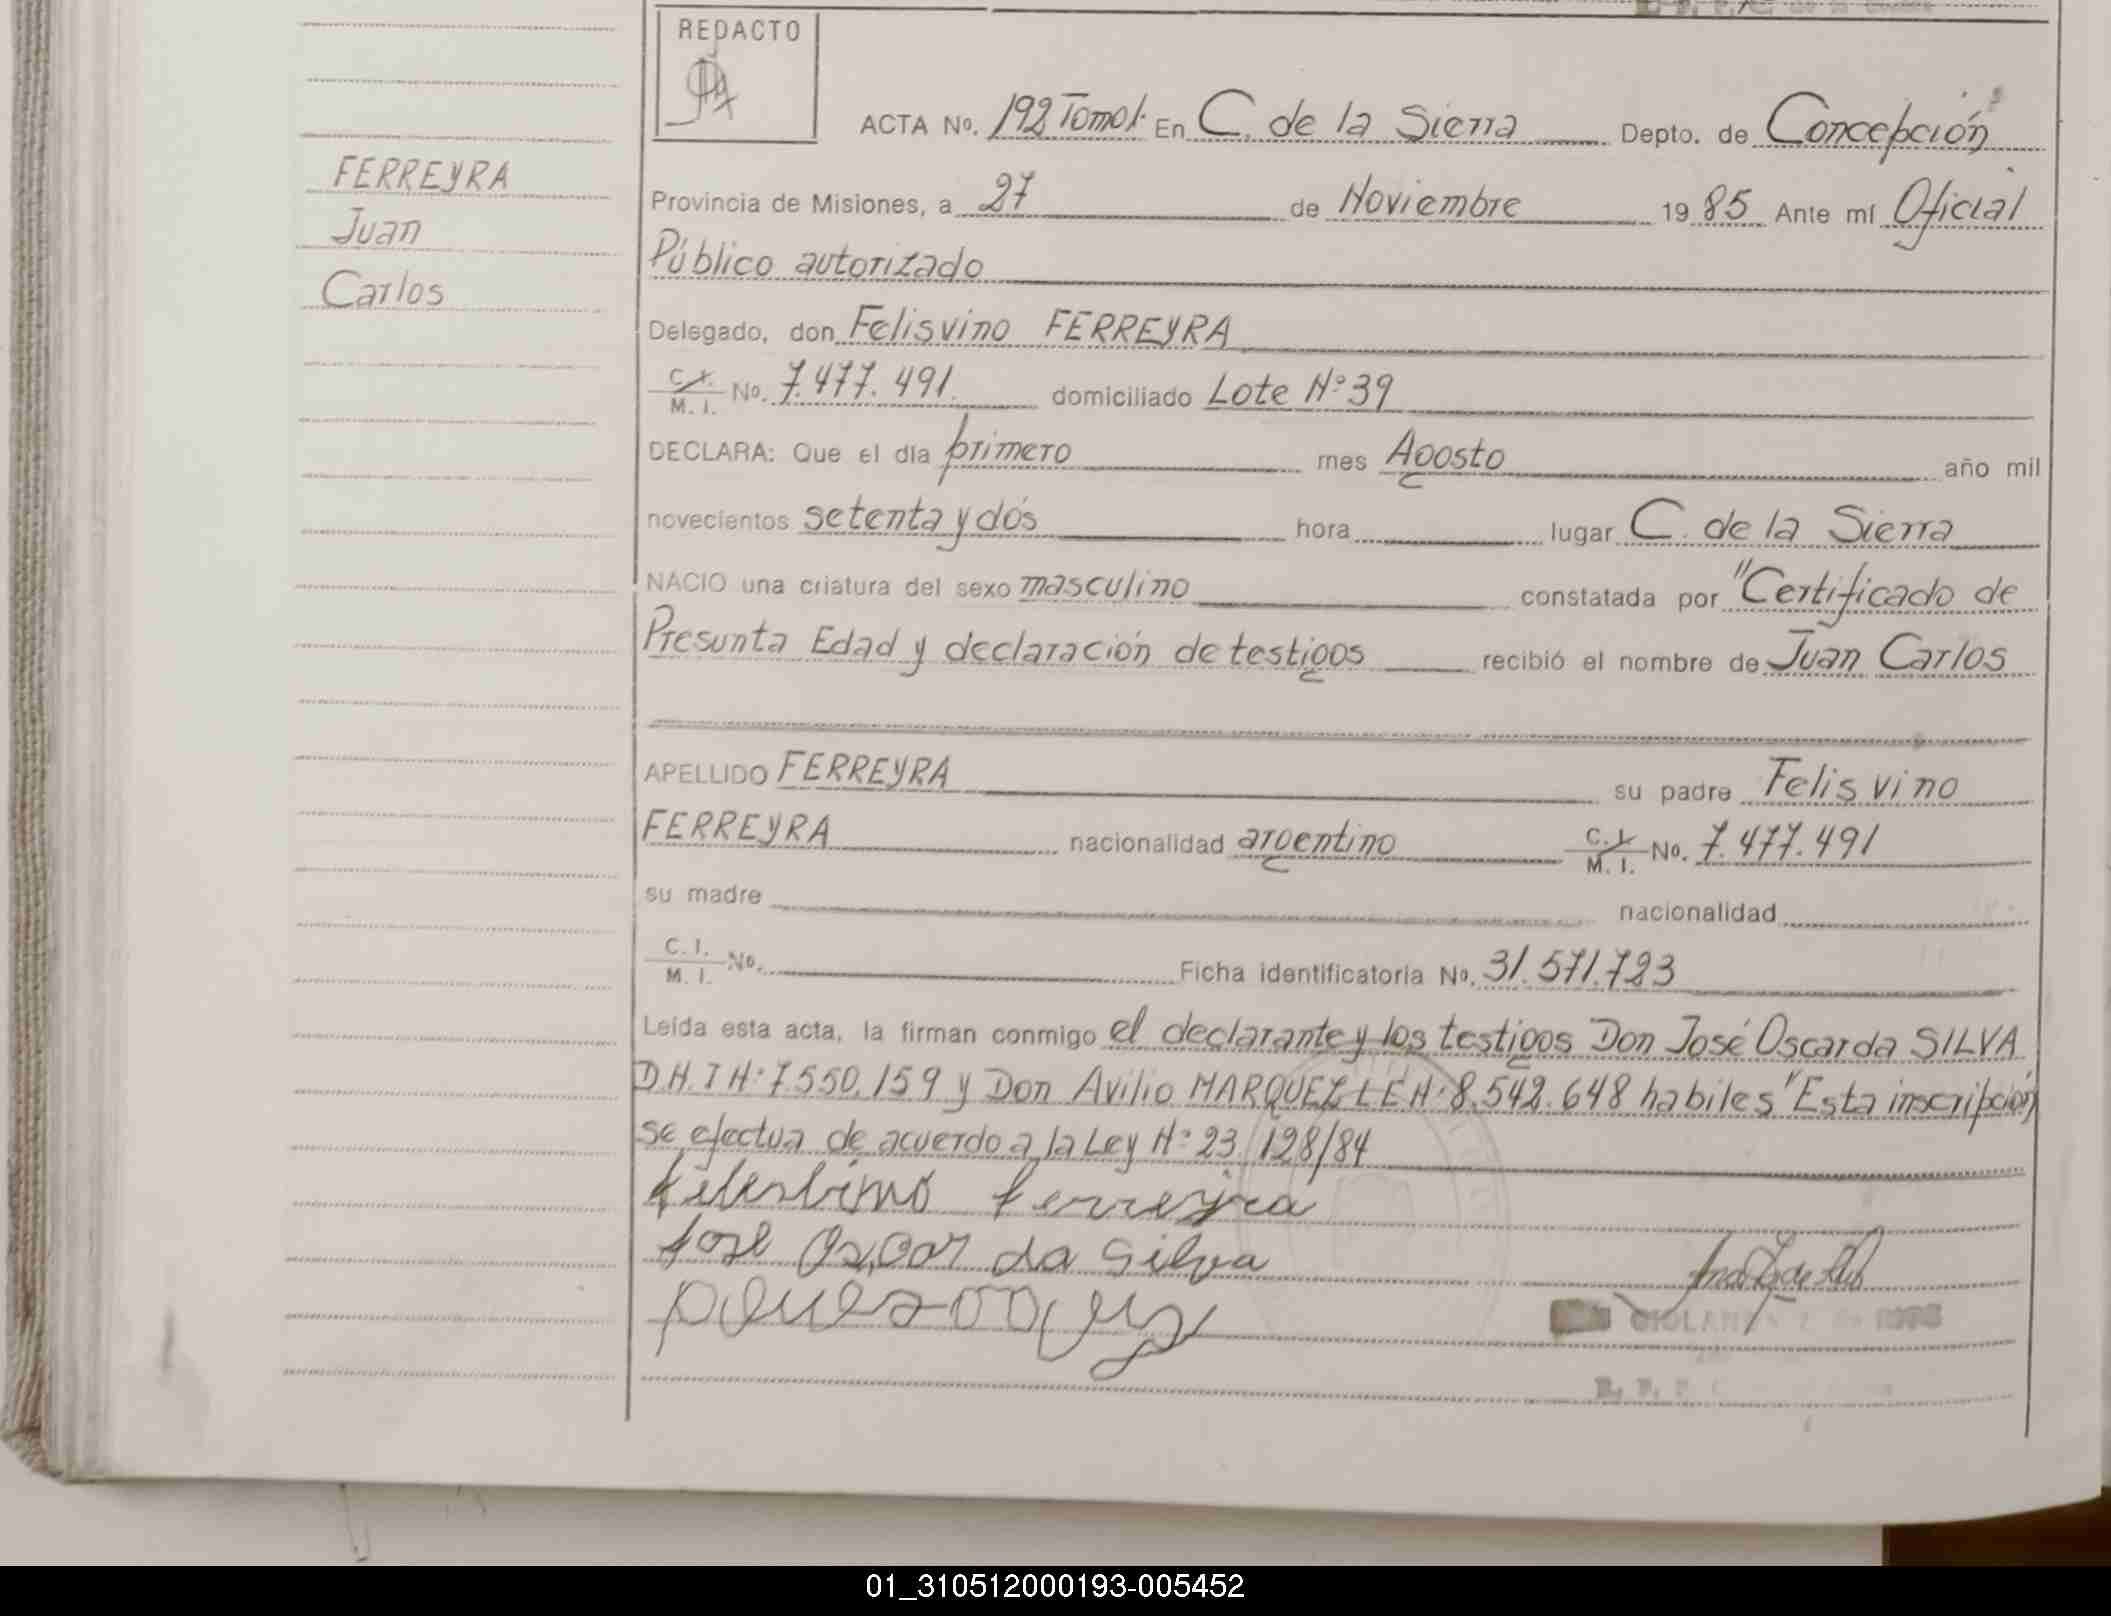 REDACTO
ACTA Nº. 192 Tomo I. En C. de la Sierra Depto. de Concepción
FERREYRA
Juan
Carlos
Provincia de Misiones, a 27 de Noviembre 19 85 Ante mí Oficial
Público autorizado
Delegado, don Felisvino FERREYRA
C.I. M. I. Nº. 7.477.491. domiciliado Lote Nº 39
DECLARA: Que el día primero mes Agosto año mil
novecientos setenta y dós hora lugar C. de la Sierra
NACIO una criatura del sexo masculino constatada por "Certificado de
Presunta Edad y declaración de testigos recibió el nombre de Juan Carlos
APELLIDO FERREYRA su padre Felisvino
FERREYRA nacionalidad argentino C.I. M. I. Nº. 7.477.491
su madre nacionalidad
C. I. M. I. Nº. Ficha identificatoria Nº. 31.571.723
Leída esta acta, la firman conmigo el declarante y los testigos Don José Oscar da SILVA
D.N.I Nº 7.550.159 y Don Avilio MARQUEZ L E Nº 8.542.648 habiles "Esta inscripción
se efectua de acuerdo a la Ley Nº 23.128/84
Ferreyra
Jose Oscar da Silva
01_310512000193-005452